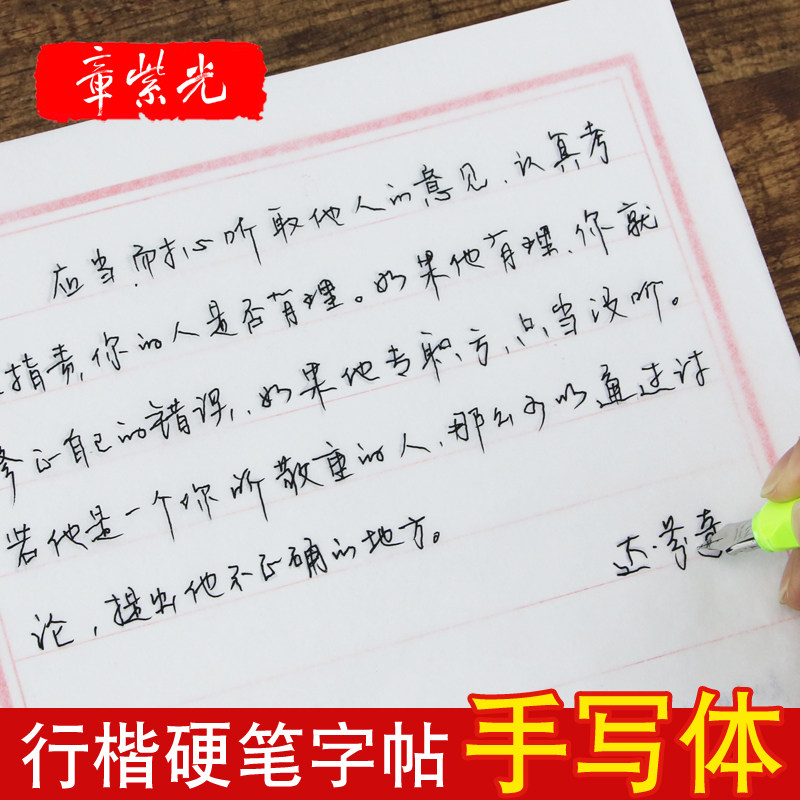 章紫光
应当耐心听取他人的意见、认真考
指责,你的人是否有理。如果他有理、你就
修正自己的错误,如果他专职,方,只当没听。
若他是一个你所敬重的人,那么可以通过讨
论,提出他不正确的地方。
达·芬奇
行楷硬笔字帖 手写体